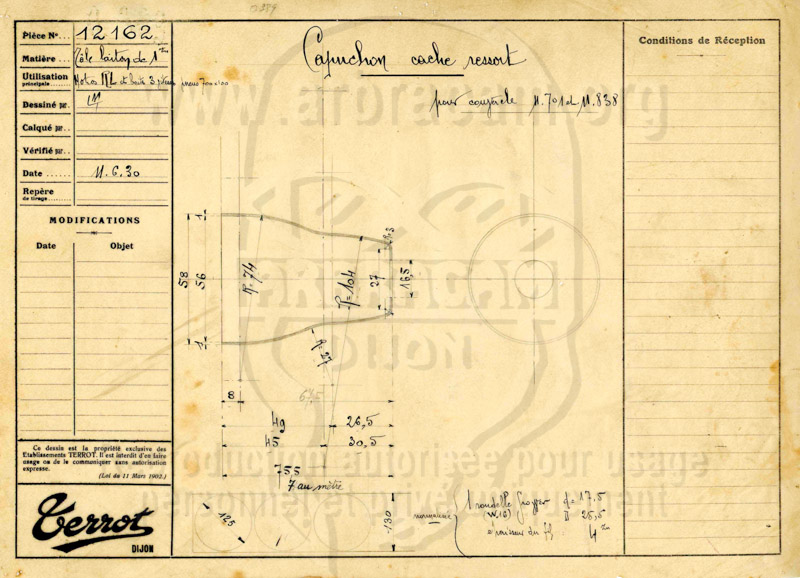 Pièce N° 12162
Matière Tôle laiton de 1 m/m
Utilisation principale Motos et
Dessiné par
Calqué par
Vérifié par
Date 11.6.30
Repère de tirage
MODIFICATIONS
Date Objet
Ce dessin est la propriété exclusive des
Etablissements TERROT. Il est interdit d'en faire
usage ou de le communiquer sans autorisation
expresse.
(Loi du 11 Mars 1902.)
Terrot
DIJON
Capuchon cache ressort
pour 11.701 et 11.838
1
58
56
R=74
R=104
27
16,5
1
R=27
8
67,5
49
26,5
45
30,5
75,5
7 au mètre
125
130
normalisée
1 rondelle Grower d = 17,5
W(16) D 25,5
épaisseur du fil 4 m/m
Conditions de Réception
www.aforacam.org
ARORACAM
DIJON
reproduction autorisée pour usage
personnel et privé uniquement